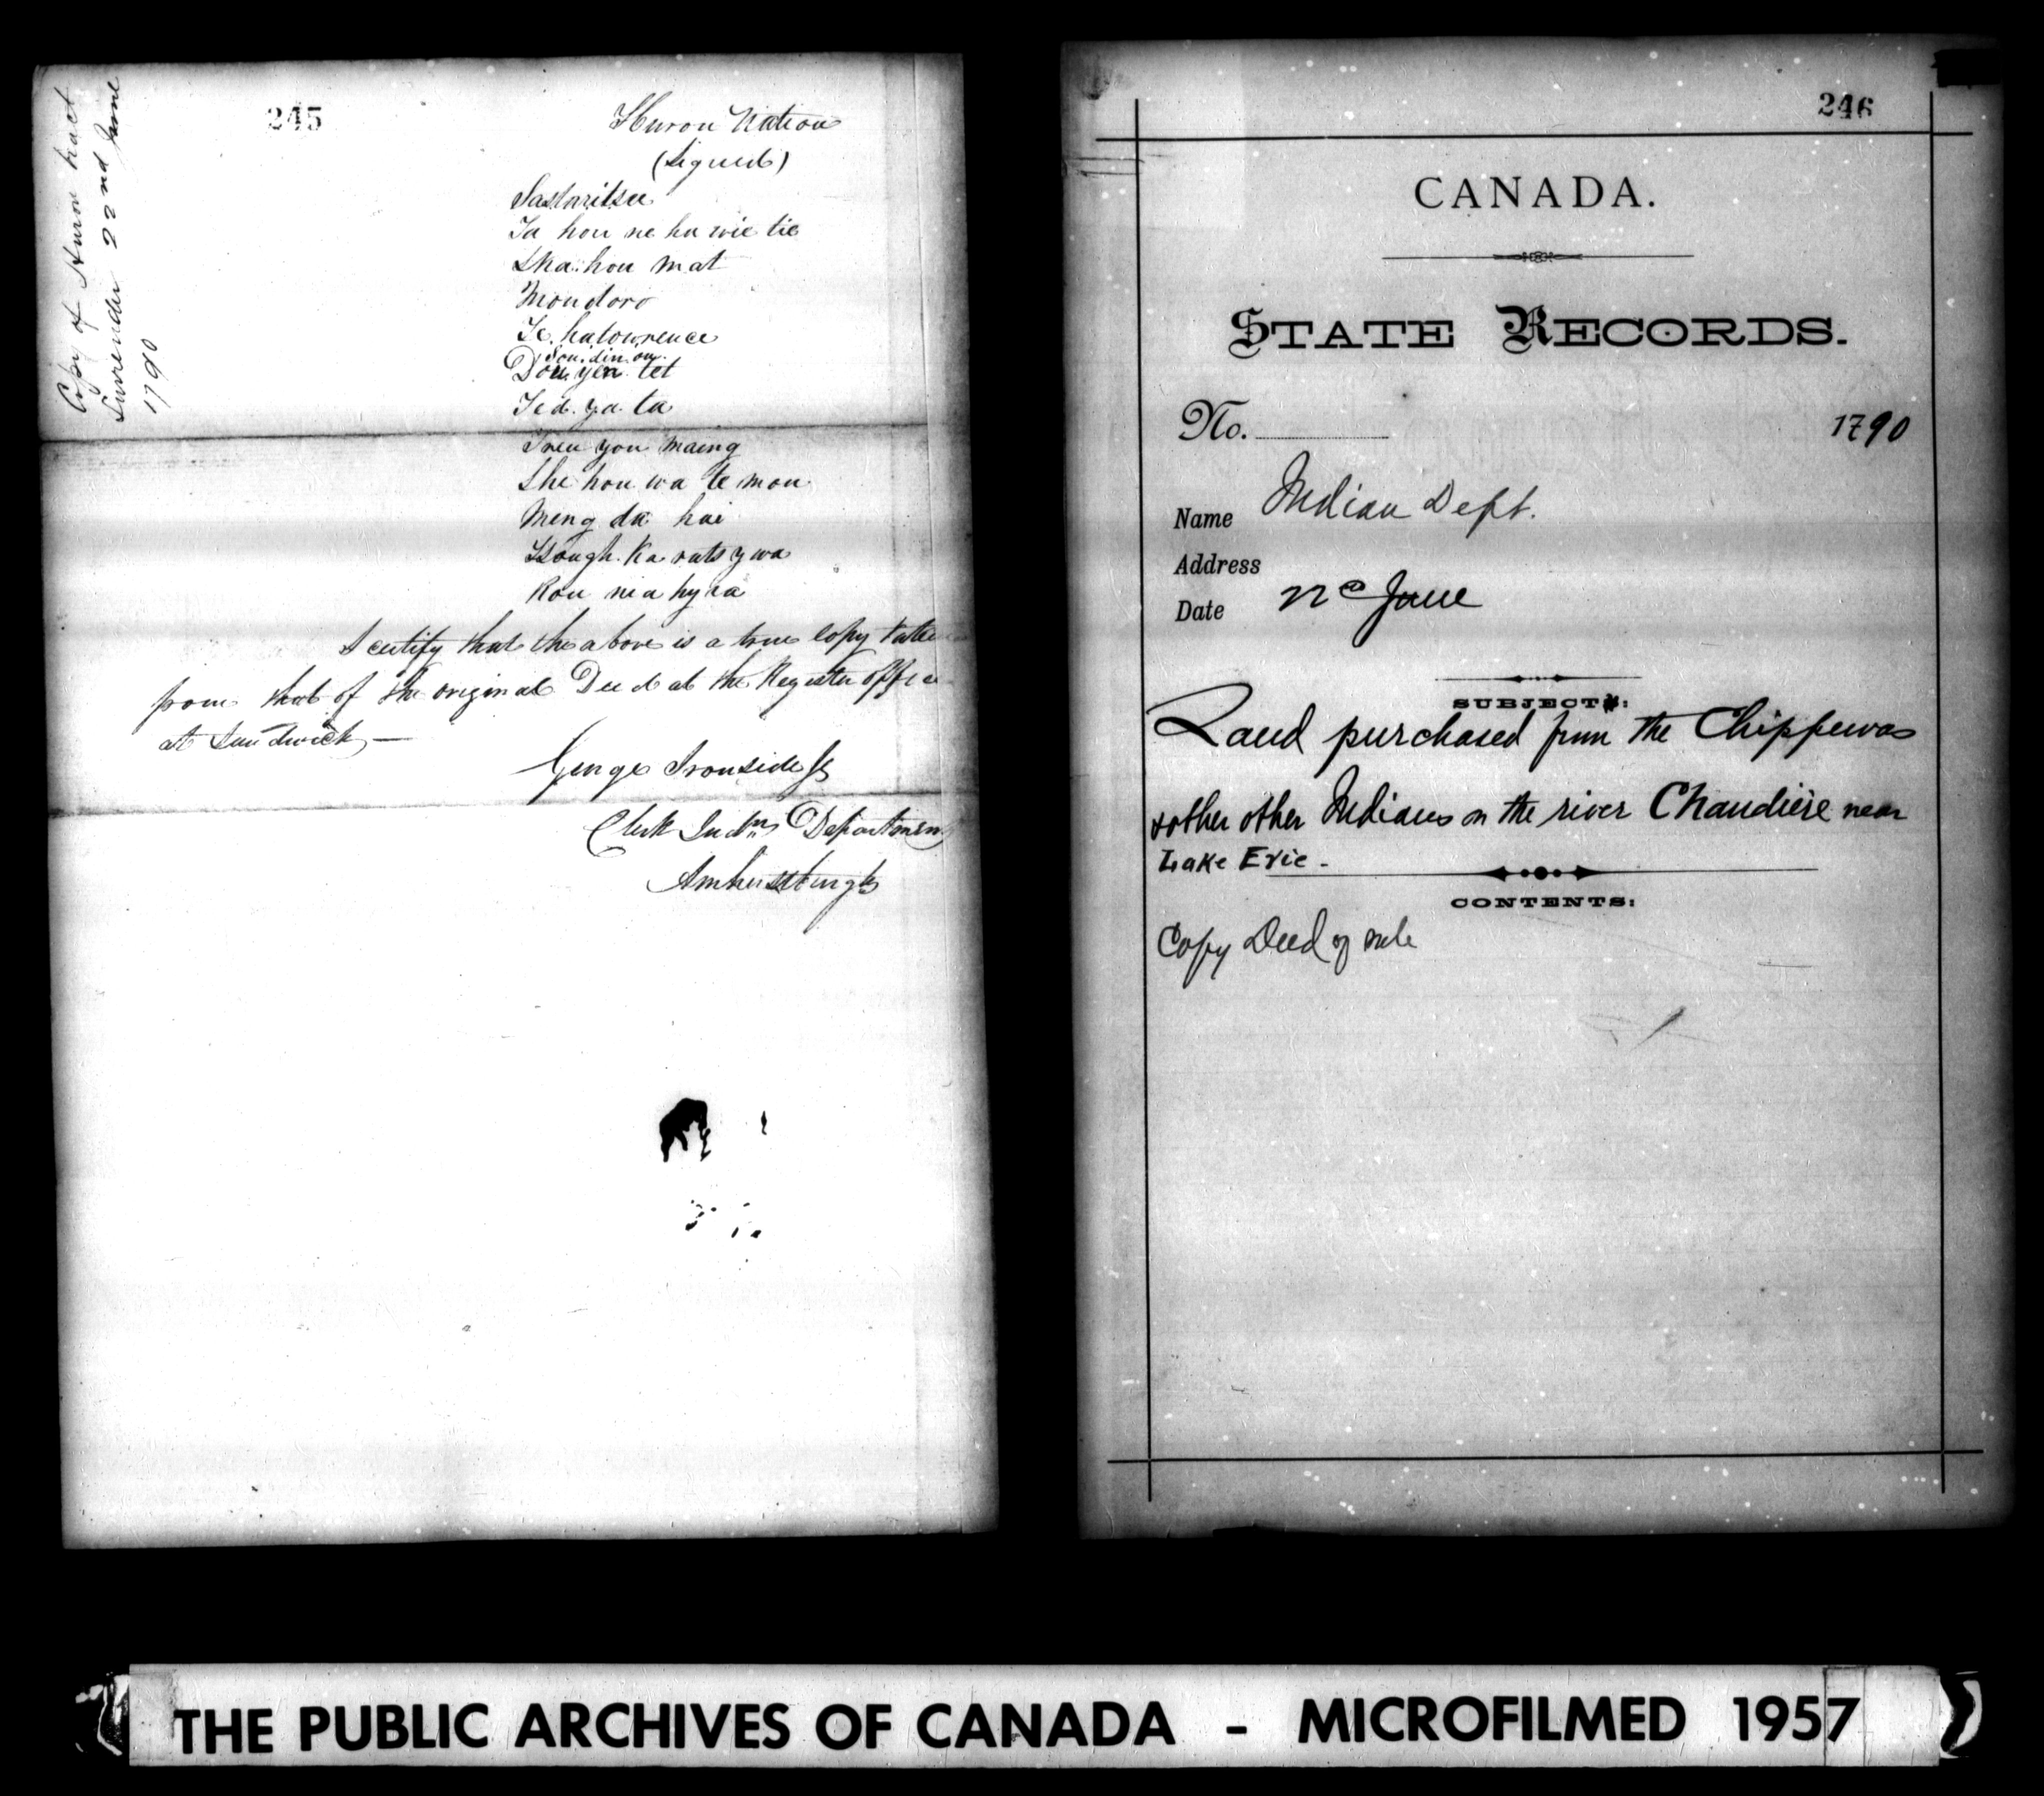 245
Copy of Huron tract
Surrender 22nd June
1790
Huron Nation
(Signed)
Sastaritsee
Ta hou ne ha wie tie
Ska hou mat
Moudoro
Te hatowrence
Sou din ou
Dou yen tet
Ted ya ta
Treu you maing
She hou wa te mou
Meng da hai
Tsough ka rats y wa
Rou nia hy ra
I certify that the above is a true Copy taken
from that of the original Deed at the Register office
at Sandwich —
George Ironside Jr
Clerk Indn Department
Amherstburgh
246
CANADA.
STATE RECORDS.
No. 1790
Name Indian Dept.
Address
Date 22d June
SUBJECT:
Land purchased from the Chippewas
& other other Indians on the river Chaudière near
Lake Erie -
CONTENTS:
Copy Deed of sale
THE PUBLIC ARCHIVES OF CANADA - MICROFILMED 1957